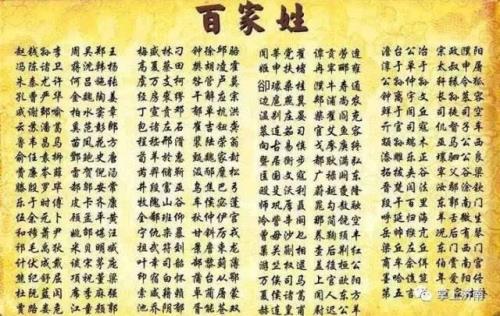 百家姓
赵钱孙李 周吴郑王 梅盛林刁 钟徐邱骆 闻莘党翟 谭贡劳逄 澹台公冶 宗政濮阳
冯陈褚卫 蒋沈韩杨 高夏蔡田 樊胡凌霍 姬申扶堵 冉宰郦雍 淳于单于 太叔申屠
朱秦尤许 何吕施张 虞万支柯 昝管卢莫 郤璩桑桂 濮牛寿通 公孙仲孙 轩辕令狐
孔曹严华 金魏陶姜 经房裘缪 干解应宗 边扈燕冀 郏浦尚农 钟离宇文 长孙慕容
戚谢邹喻 柏水窦章 丁宣贲邓 郁单杭洪 温别庄晏 柴瞿阎充 鲜于闾丘 司徒司空
云苏潘葛 奚范彭郎 包诸左石 崔吉钮龚 慕连茹习 宦艾鱼容 亓官司寇 仉督子车
鲁韦昌马 苗凤花方 程嵇邢滑 裴陆荣翁 向古易慎 戈廖庾终 颛孙端木 巫马公西
俞任袁柳 酆鲍史唐 荀羊於惠 甄曲家封 暨居衡步 都耿满弘 漆雕乐正 壤驷公良
费廉岑薛 雷贺倪汤 芮羿储靳 汲邴糜松 匡国文寇 广禄阙东 拓跋夹谷 宰父谷梁
滕殷罗毕 郝邬安常 井段富巫 乌焦巴弓 欧殳沃利 蔚越夔隆 晋楚闫法 汝鄢涂钦
乐于时傅 皮卞齐康 牧隗山谷 车侯宓蓬 师巩厍聂 晁勾敖融 段干百里 东郭南门
伍余元卜 顾孟平黄 全郗班仰 秋仲伊宫 冷訾辛阚 那简饶空 呼延归海 羊舌微生
和穆萧尹 姚邵湛汪 宁仇栾暴 甘钭厉戎 曾毋沙乜 养鞠须丰 岳帅缑亢 况后有琴
祁毛禹狄 米贝明臧 祖武符刘 景詹束龙 巢关蒯相 查后荆红 梁丘左丘 东门西门
计伏成戴 谈宋茅庞 叶幸司韶 郜黎蓟薄 游竺权逯 盖益桓公 商牟佘佴 伯赏南宫
熊纪舒屈 项祝董梁 印宿白怀 蒲邰从鄂 万俟司马 上官欧阳 墨哈谯笪 年爱阳佟
杜阮蓝闵 席季麻强 索咸籍赖 卓蔺屠蒙 夏侯诸葛 闻人东方 第五言福
掌上济南